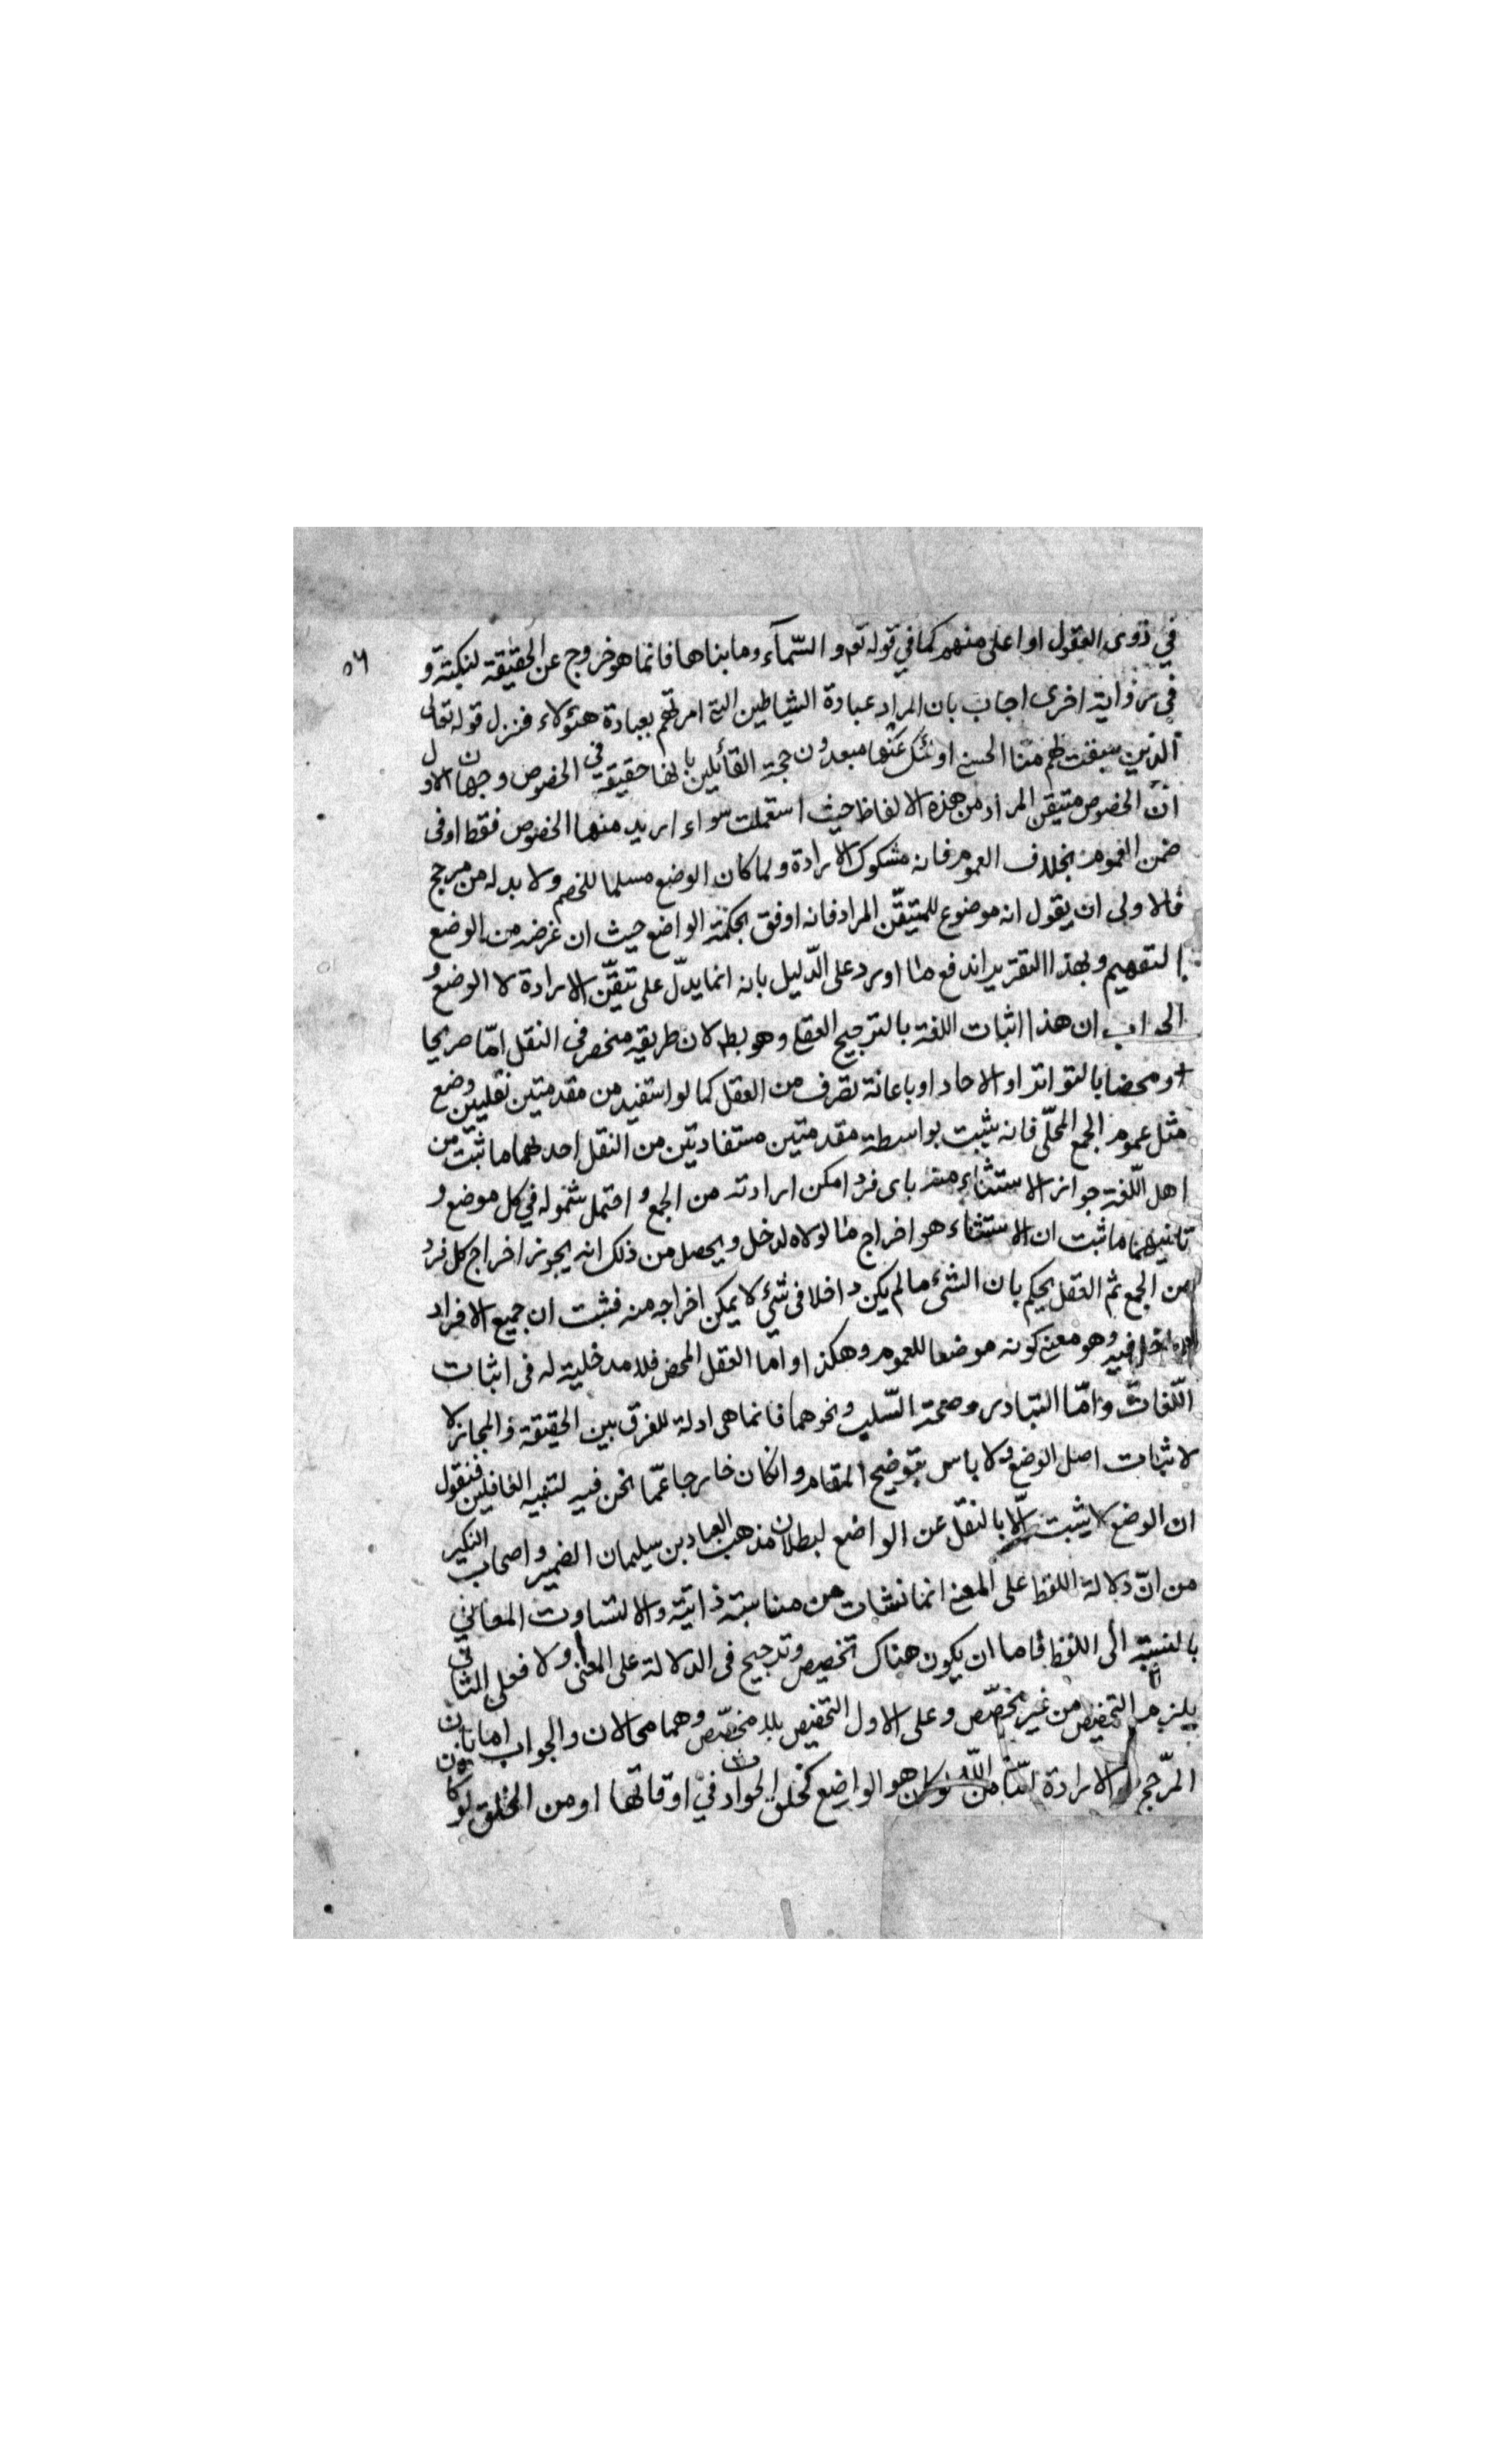 ٥٦
في ذوى العقول او اعلى منهم كما في قوله تع والسّمآء وما بناها فانما هو خروج عن الحقيقة لنكتة و
في رواية اخرى اجاب بان المراد عبادة الشياطين التى امرتهم بعبادة هؤلاء فنزل قوله تعالى
الذين سبقت لهم منا الحسنى اولئك عنها مبعدون حجة القائلين بانها حقيقة في الخصوص وجهان الاول
ان الخصوص متيقن المراد من هذه الالفاظ حيث استعملت سواء اريد منها الخصوص فقط او فى
ضمن العموم بخلاف العموم فانه مشكوك الارادة ولما كان الوضع مسلما للخصم ولا بد له من مرجح
فالاولى ان يقول انه موضوع للمتيقّن المراد فانه اوفق بحكمة الواضع حيث ان غرضه من الوضع
التفهيم وبهذا التقرير اندفع ما اورد على الدّليل بانه انما يدلّ على تيقّن الارادة لا الوضع و
الجواب ان هذا اثبات اللغة بالترجيح العقلى وهو بط لان طريقه منحصر فى النقل امّا صريحا
او محضا بالتواتر او الاحاد او باعانة تصرف من العقل كما لو استفيد من مقدمتين نقليتين وضع
مثل عموم الجمع المحلّى فانه يثبت بواسطة مقدمتين مستفادتين من النقل احدهما ما ثبت من
اهل اللّغة جواز الاستثناء منه باى فرد امكن ارادته من الجمع و احتمل شموله في كل موضع و
ثانيهما ما ثبت ان الاستثناء هو اخراج ما لولاه لدخل ويحصل من ذلك انه يجوز اخراج كل فرد
من الجمع ثم العقل يحكم بان الشئ ما لم يكن داخلا فى شئ لا يمكن اخراجه منه فثبت ان جميع الافراد
داخل فيه وهو معنى كونه موضعا للعموم وهكذا واما العقل المحض فلا مدخلية له فى اثبات
اللّغات وامّا التبادر وصحة السّلب ونحوهما فانما هى ادلة للفرق بين الحقيقة والمجاز لا
لاثبات اصل الوضع ولا باس بتوضيح المقام وانكان خارجا عمّا نحن فيه لتنبيه الغافلين فنقول
ان الوضع لا يثبت الّا بالنقل عن الواضع لبطلان مذهب العباد بن سليمان الضمير واصحاب النكير
من انّ دلالة اللفظ على المعنى انما نشات من مناسبة ذاتية والا لتساوت المعانى
بالنسبة الى اللفظ فاما ان يكون هناك تخصيص وترجيح فى الدلالة على المعنى اولا فعلى الثانى
يلزم التخصيص من غير مخصّص وعلى الاول التخصيص بلا مخصّص وهما محالان والجواب اما بان
المرّجح الارادة امّا من اللّه لو كان هو الواضع كخلق الحوادث في اوقاتها او من الخلق لو كانون